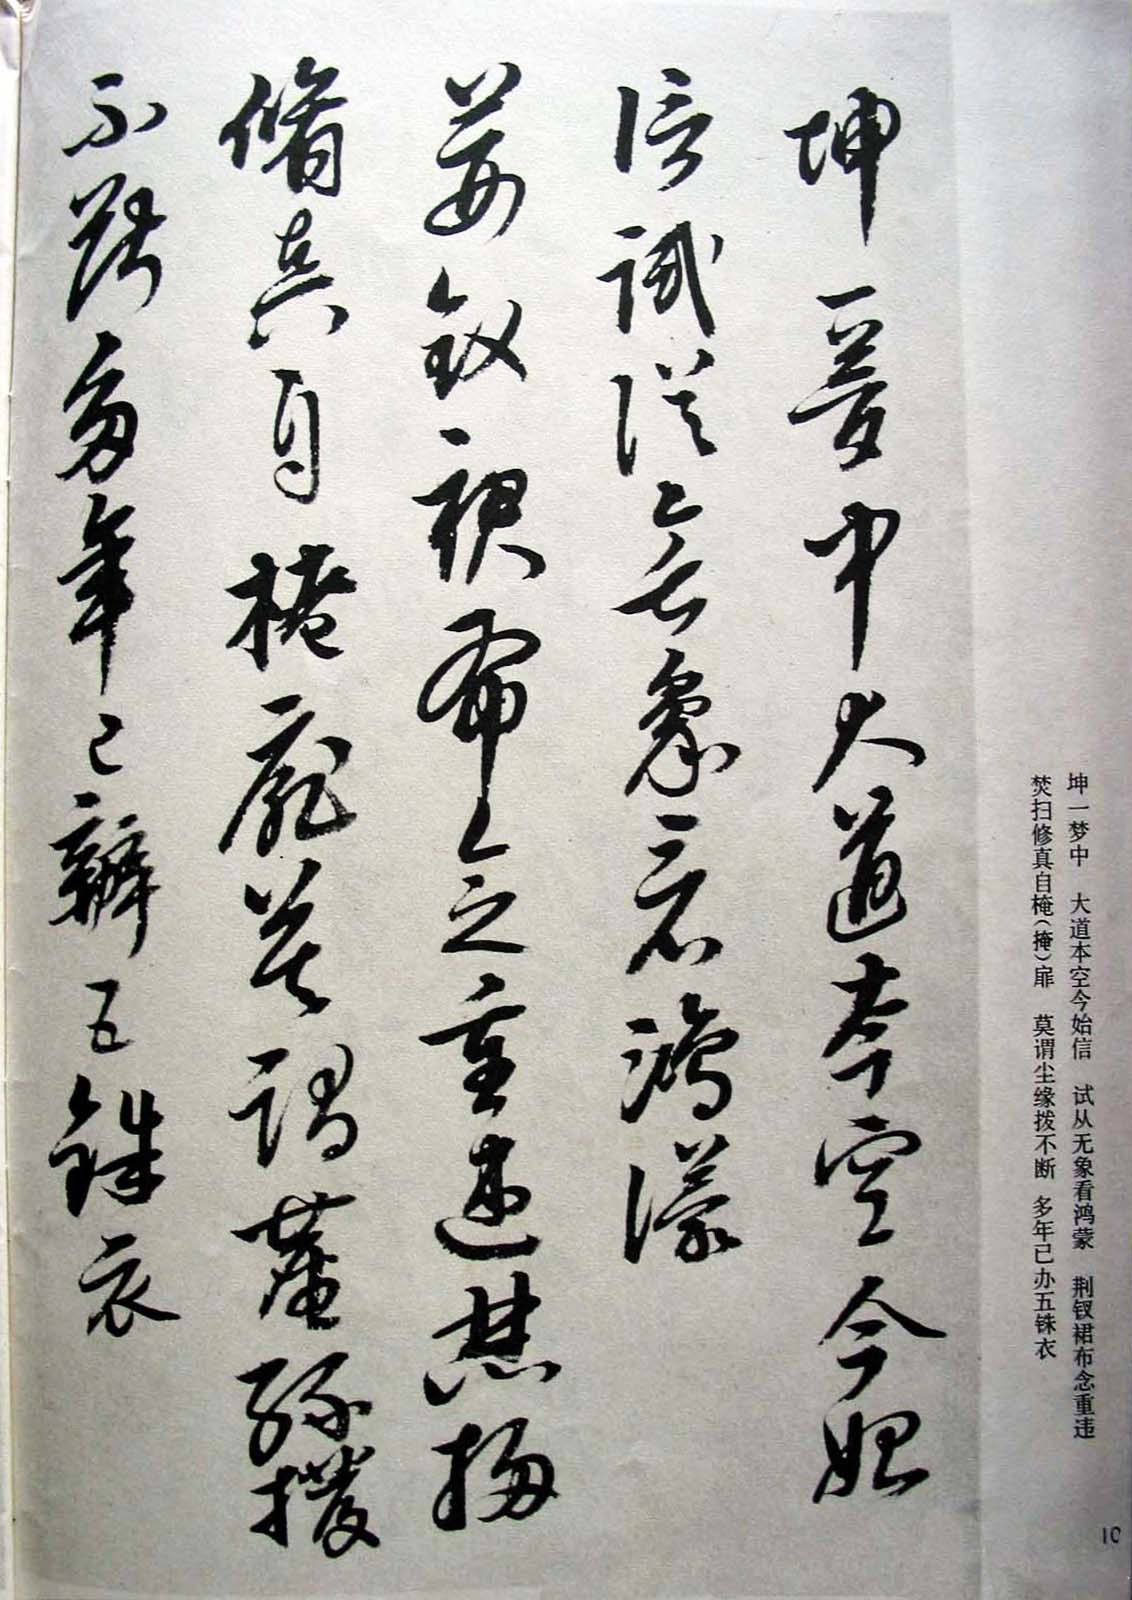 坤一梦中　大道本空今始信　试从无象看鸿蒙　荆钗裙布念重违
焚扫修真自（掩）扉　莫谓尘缘拨不断　多年已办五铢衣
坤一夢中大道本空今始
信試從無象看鴻濛
荆釵裙布念重違焚掃
脩真自扉莫謂塵緣撥
不斷多年已辦五銖衣
10